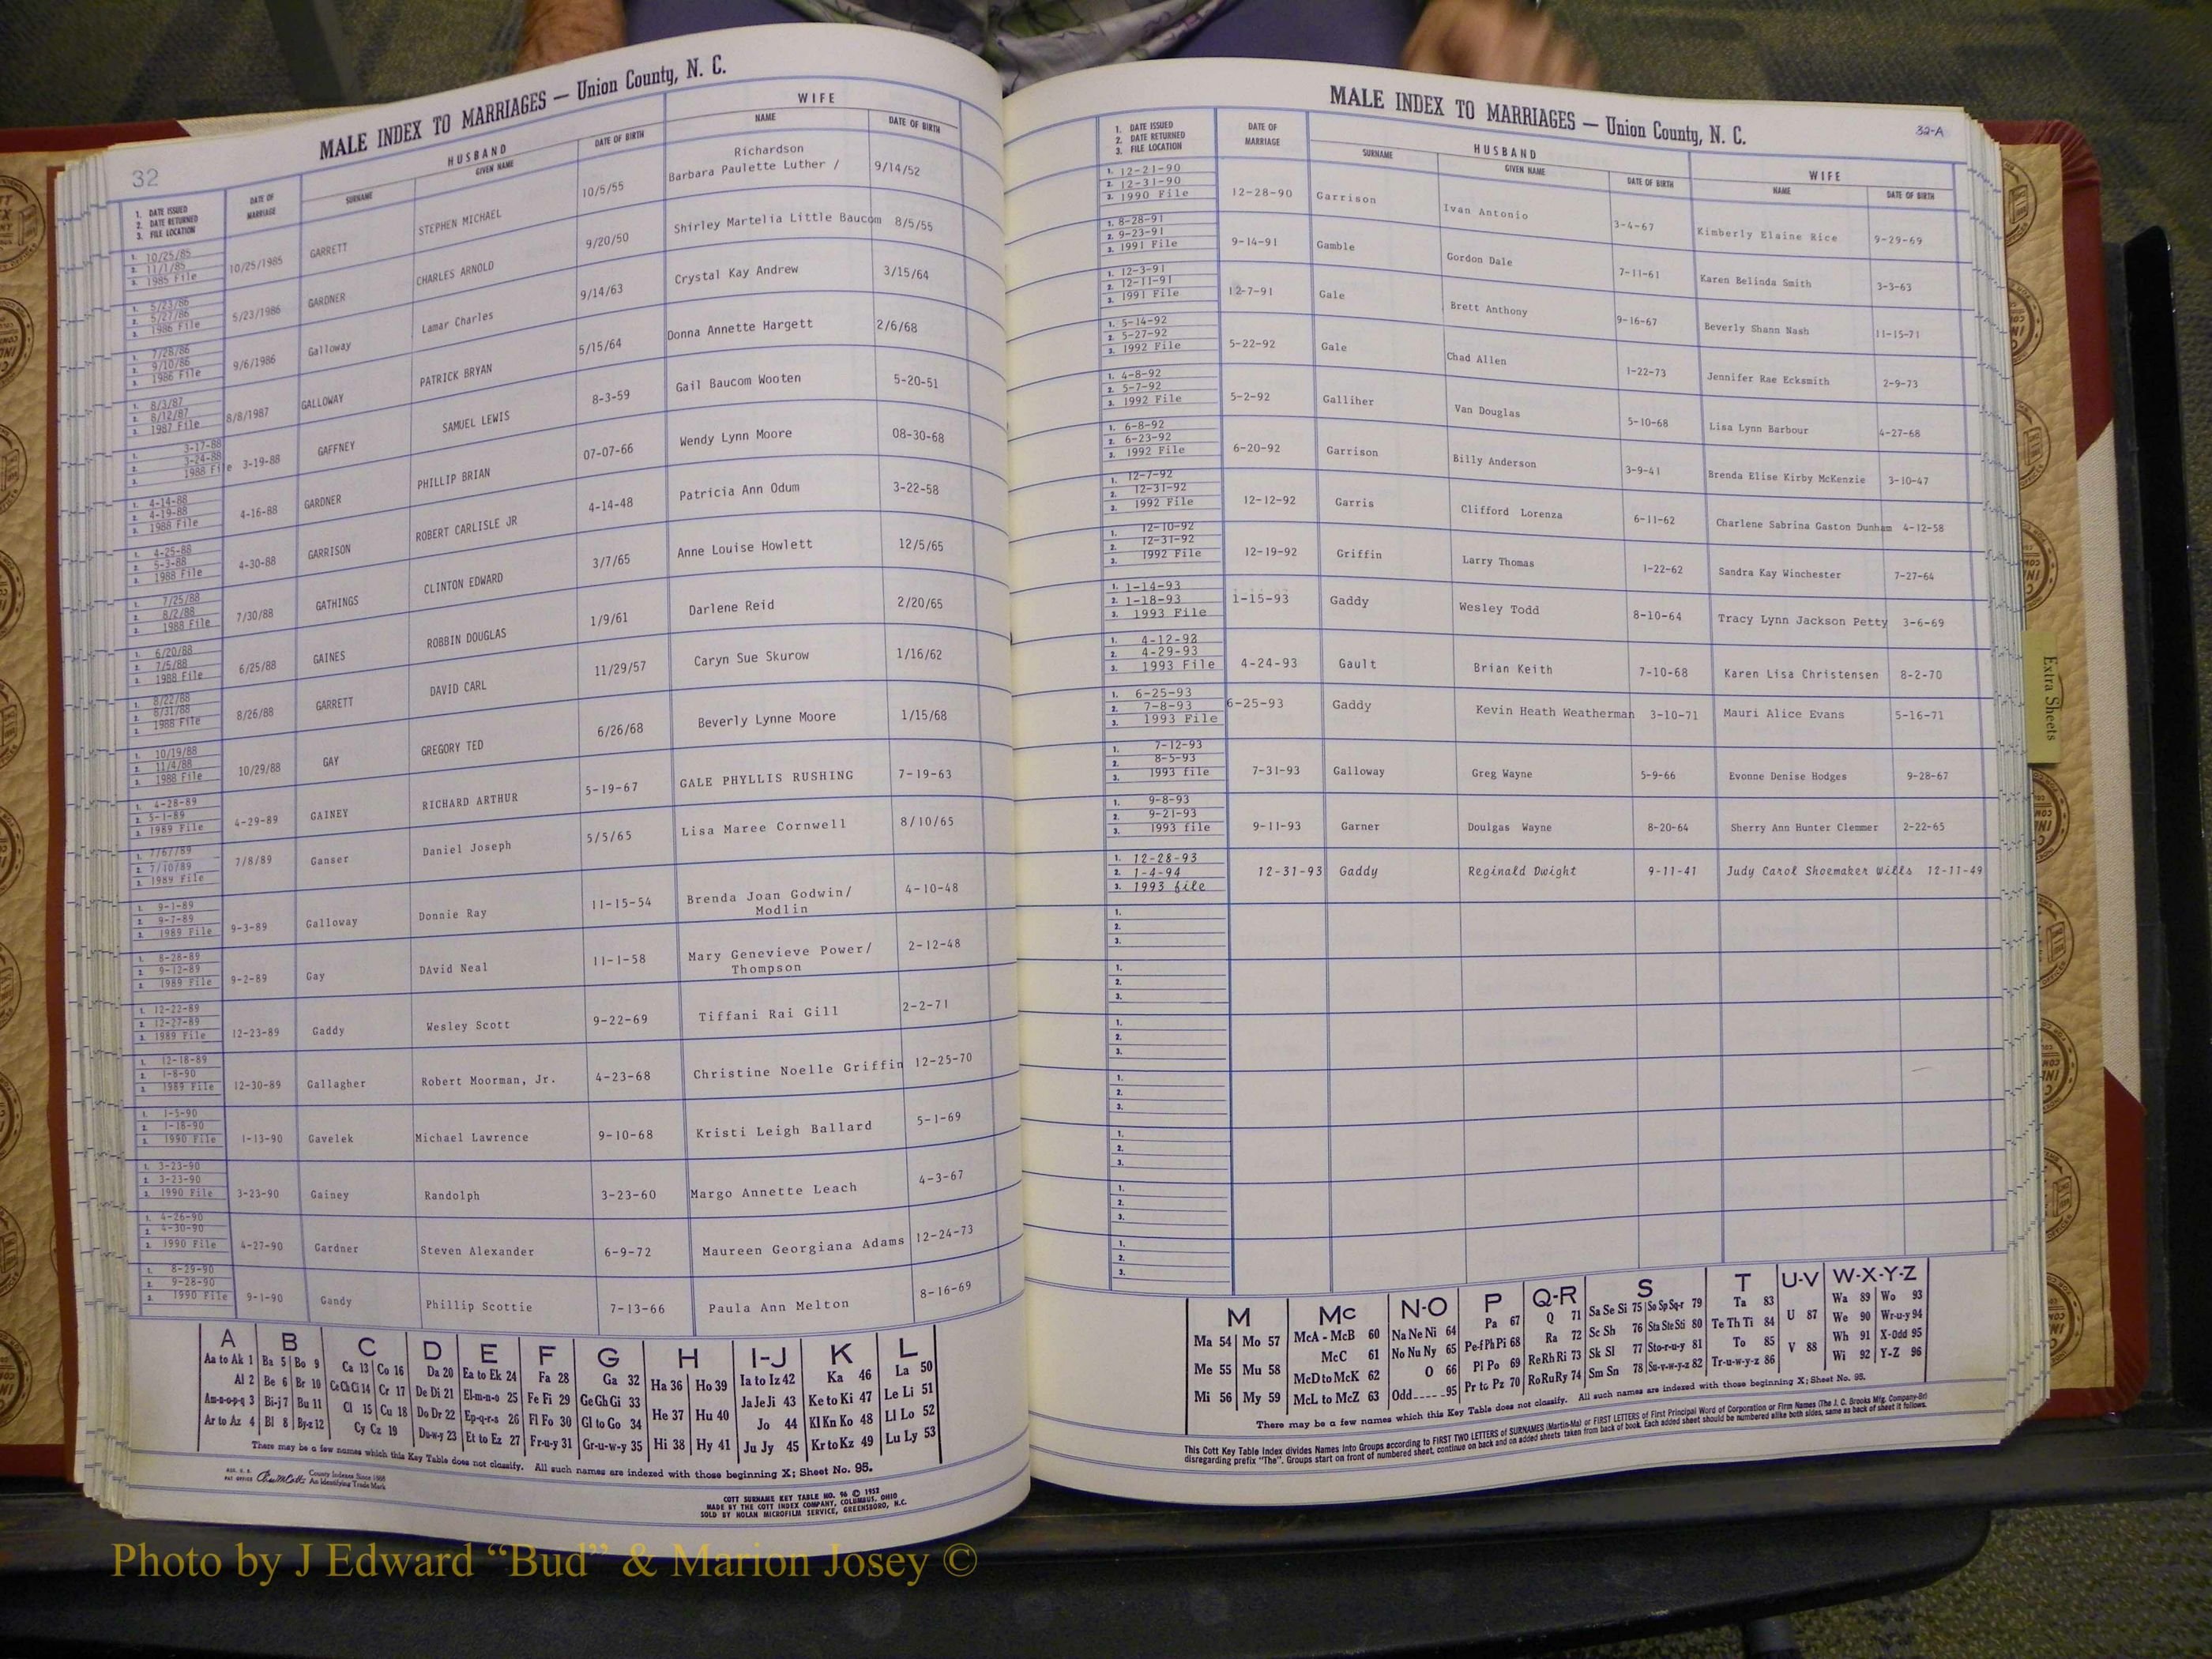 32
MALE INDEX TO MARRIAGES — Union County, N. C.
1. DATE ISSUED
2. DATE RETURNED
3. FILE LOCATION
DATE OF MARRIAGE
HUSBAND
SURNAME GIVEN NAME DATE OF BIRTH
WIFE
NAME DATE OF BIRTH
1. 10/25/85
2. 11/1/85
3. 1985 File
10/25/1985 GARRETT STEPHEN MICHAEL 10/5/55 Richardson
Barbara Paulette Luther / 9/14/52
1. 5/23/86
2. 5/27/86
3. 1986 File
5/23/1986 GARDNER CHARLES ARNOLD 9/20/50 Shirley Martelia Little Baucom 8/5/55
1. 7/28/86
2. 9/10/86
3. 1986 File
9/6/1986 Galloway Lamar Charles 9/14/63 Crystal Kay Andrew 3/15/64
1. 8/3/87
2. 8/12/87
3. 1987 File
8/8/1987 GALLOWAY PATRICK BRYAN 5/15/64 Donna Annette Hargett 2/6/68
1. 3-17-88
2. 3-24-88
3. 1988 File
3-19-88 GAFFNEY SAMUEL LEWIS 8-3-59 Gail Baucom Wooten 5-20-51
1. 4-14-88
2. 4-19-88
3. 1988 File
4-16-88 GARDNER PHILLIP BRIAN 07-07-66 Wendy Lynn Moore 08-30-68
1. 4-25-88
2. 5-3-88
3. 1988 File
4-30-88 GARRISON ROBERT CARLISLE JR 4-14-48 Patricia Ann Odum 3-22-58
1. 7/25/88
2. 8/2/88
3. 1988 File
7/30/88 GATHINGS CLINTON EDWARD 3/7/65 Anne Louise Howlett 12/5/65
1. 6/20/88
2. 7/5/88
3. 1988 File
6/25/88 GAINES ROBBIN DOUGLAS 1/9/61 Darlene Reid 2/20/65
1. 8/22/88
2. 8/31/88
3. 1988 File
8/26/88 GARRETT DAVID CARL 11/29/57 Caryn Sue Skurow 1/16/62
1. 10/19/88
2. 11/4/88
3. 1988 File
10/29/88 GAY GREGORY TED 6/26/68 Beverly Lynne Moore 1/15/68
1. 4-28-89
2. 5-1-89
3. 1989 File
4-29-89 GAINEY RICHARD ARTHUR 5-19-67 GALE PHYLLIS RUSHING 7-19-63
1. 7/6/789
2. 7/10/89
3. 1989 File
7/8/89 Ganser Daniel Joseph 5/5/65 Lisa Maree Cornwell 8/10/65
1. 9-1-89
2. 9-7-89
3. 1989 File
9-3-89 Galloway Donnie Ray 11-15-54 Brenda Joan Godwin/
Modlin 4-10-48
1. 8-28-89
2. 9-12-89
3. 1989 File
9-2-89 Gay DAvid Neal 11-1-58 Mary Genevieve Power/
Thompson 2-12-48
1. 12-22-89
2. 12-27-89
3. 1989 File
12-23-89 Gaddy Wesley Scott 9-22-69 Tiffani Rai Gill 2-2-71
1. 12-18-89
2. 1-8-90
3. 1989 File
12-30-89 Gallagher Robert Moorman, Jr. 4-23-68 Christine Noelle Griffin 12-25-70
1. 1-5-90
2. 1-18-90
3. 1990 File
1-13-90 Gavelek Michael Lawrence 9-10-68 Kristi Leigh Ballard 5-1-69
1. 3-23-90
2. 3-23-90
3. 1990 File
3-23-90 Gainey Randolph 3-23-60 Margo Annette Leach 4-3-67
1. 4-26-90
2. 4-30-90
3. 1990 File
4-27-90 Gardner Steven Alexander 6-9-72 Maureen Georgiana Adams 12-24-73
1. 8-29-90
2. 9-28-90
3. 1990 File
9-1-90 Gandy Phillip Scottie 7-13-66 Paula Ann Melton 8-16-69
A B C D E F G H I-J K L
Aa to Ak 1 Ba 5 Bo 9 Ca 13 Co 16 Da 20 Ea to Ek 24 Fa 28 Ga 32 Ha 36 Ho 39 Ia to Iz 42 Ka 46 La 50
Al 2 Be 6 Br 10 Ce Ch Ci 14 Cr 17 De Di 21 El-m-n-o 25 Fe Fi 29 Ge Gh Gi 33 Ja Je Ji 43 Ke to Ki 47 Le Li 51
Am-n-o-p-q 3 Bi-j 7 Bu 11 Cl 15 Cu 18 Do Dr 22 Ep-q-r-s 26 Fl Fo 30 Gl to Go 34 He 37 Hu 40 Jo 44 Kl Kn Ko 48 Ll Lo 52
Ar to Az 4 Bl 8 By-z 12 Cy Cz 19 Du-w-y 23 Et to Ez 27 Fr-u-y 31 Gr-u-w-y 35 Hi 38 Hy 41 Ju Jy 45 Kr to Kz 49 Lu Ly 53
There may be a few names which this Key Table does not classify. All such names are indexed with those beginning X; Sheet No. 95.
County Indexes Since 1888
An Identifying Trade Mark
COTT SURNAME KEY TABLE NO. 96 © 1952
MADE BY THE COTT INDEX COMPANY, COLUMBUS, OHIO
SOLD BY NOLAN MICROFILM SERVICE, GREENSBORO, N.C.
MALE INDEX TO MARRIAGES — Union County, N. C.
32-A
1. DATE ISSUED
2. DATE RETURNED
3. FILE LOCATION
DATE OF MARRIAGE
HUSBAND
SURNAME GIVEN NAME DATE OF BIRTH
WIFE
NAME DATE OF BIRTH
1. 12-21-90
2. 12-31-90
3. 1990 File
12-28-90 Garrison Ivan Antonio 3-4-67 Kimberly Elaine Rice 9-29-69
1. 8-28-91
2. 9-23-91
3. 1991 File
9-14-91 Gamble Gordon Dale 7-11-61 Karen Belinda Smith 3-3-63
1. 12-3-91
2. 12-11-91
3. 1991 File
12-7-91 Gale Brett Anthony 9-16-67 Beverly Shann Nash 11-15-71
1. 5-14-92
2. 5-27-92
3. 1992 File
5-22-92 Gale Chad Allen 1-22-73 Jennifer Rae Ecksmith 2-9-73
1. 4-8-92
2. 5-7-92
3. 1992 File
5-2-92 Galliher Van Douglas 5-10-68 Lisa Lynn Barbour 4-27-68
1. 6-8-92
2. 6-23-92
3. 1992 File
6-20-92 Garrison Billy Anderson 3-9-41 Brenda Elise Kirby McKenzie 3-10-47
1. 12-7-92
2. 12-31-92
3. 1992 File
12-12-92 Garris Clifford Lorenza 6-11-62 Charlene Sabrina Gaston Dunham 4-12-58
1. 12-10-92
2. 12-31-92
3. 1992 File
12-19-92 Griffin Larry Thomas 1-22-62 Sandra Kay Winchester 7-27-64
1. 1-14-93
2. 1-18-93
3. 1993 File
1-15-93 Gaddy Wesley Todd 8-10-64 Tracy Lynn Jackson Petty 3-6-69
1. 4-12-93
2. 4-29-93
3. 1993 File
4-24-93 Gault Brian Keith 7-10-68 Karen Lisa Christensen 8-2-70
1. 6-25-93
2. 7-8-93
3. 1993 File
6-25-93 Gaddy Kevin Heath Weatherman 3-10-71 Mauri Alice Evans 5-16-71
1. 7-12-93
2. 8-5-93
3. 1993 file
7-31-93 Galloway Greg Wayne 5-9-66 Evonne Denise Hodges 9-28-67
1. 9-8-93
2. 9-21-93
3. 1993 file
9-11-93 Garner Doulgas Wayne 8-20-64 Sherry Ann Hunter Clemmer 2-22-65
1. 12-28-93
2. 1-4-94
3. 1993 file
12-31-93 Gaddy Reginald Dwight 9-11-41 Judy Carol Shoemaker Wills 12-11-49
1.
2.
3.
1.
2.
3.
1.
2.
3.
1.
2.
3.
1.
2.
3.
1.
2.
3.
1.
2.
3.
M Mc N-O P Q-R S T U-V W-X-Y-Z
Ma 54 Mo 57 McA - McB 60 Na Ne Ni 64 Pa 67 Q 71 Sa Se Si 75 So Sp Sq-r 79 Ta 83 U 87 Wa 89 Wo 93
Me 55 Mu 58 McC 61 No Nu Ny 65 Pe-f Ph Pi 68 Ra 72 Sc Sh 76 Sta Ste Sti 80 Te Th Ti 84 We 90 Wr-u-y 94
McD to McK 62 O 66 Pl Po 69 Re Rh Ri 73 Sk Sl 77 Sto-r-u-y 81 To 85 V 88 Wh 91 X-Odd 95
Mi 56 My 59 McL to McZ 63 Odd-----95 Pr to Pz 70 Ro Ru Ry 74 Sm Sn 78 Su-v-w-y-z 82 Tr-u-w-y-z 86 Wi 92 Y-Z 96
There may be a few names which this Key Table does not classify. All such names are indexed with those beginning X; Sheet No. 95.
This Cott Key Table Index divides Names Into Groups according to FIRST TWO LETTERS of SURNAMES (Martin-Ma) or FIRST LETTERS of First Principal Word of Corporation or Firm Names (The J. C. Brooks Mfg. Company-Br)
disregarding prefix "The". Groups start on front of numbered sheet, continue on back and on added sheets taken from back of book. Each added sheet should be numbered alike both sides, same as back of sheet it follows.
Extra Sheets
Photo by J Edward “Bud” & Marion Josey ©